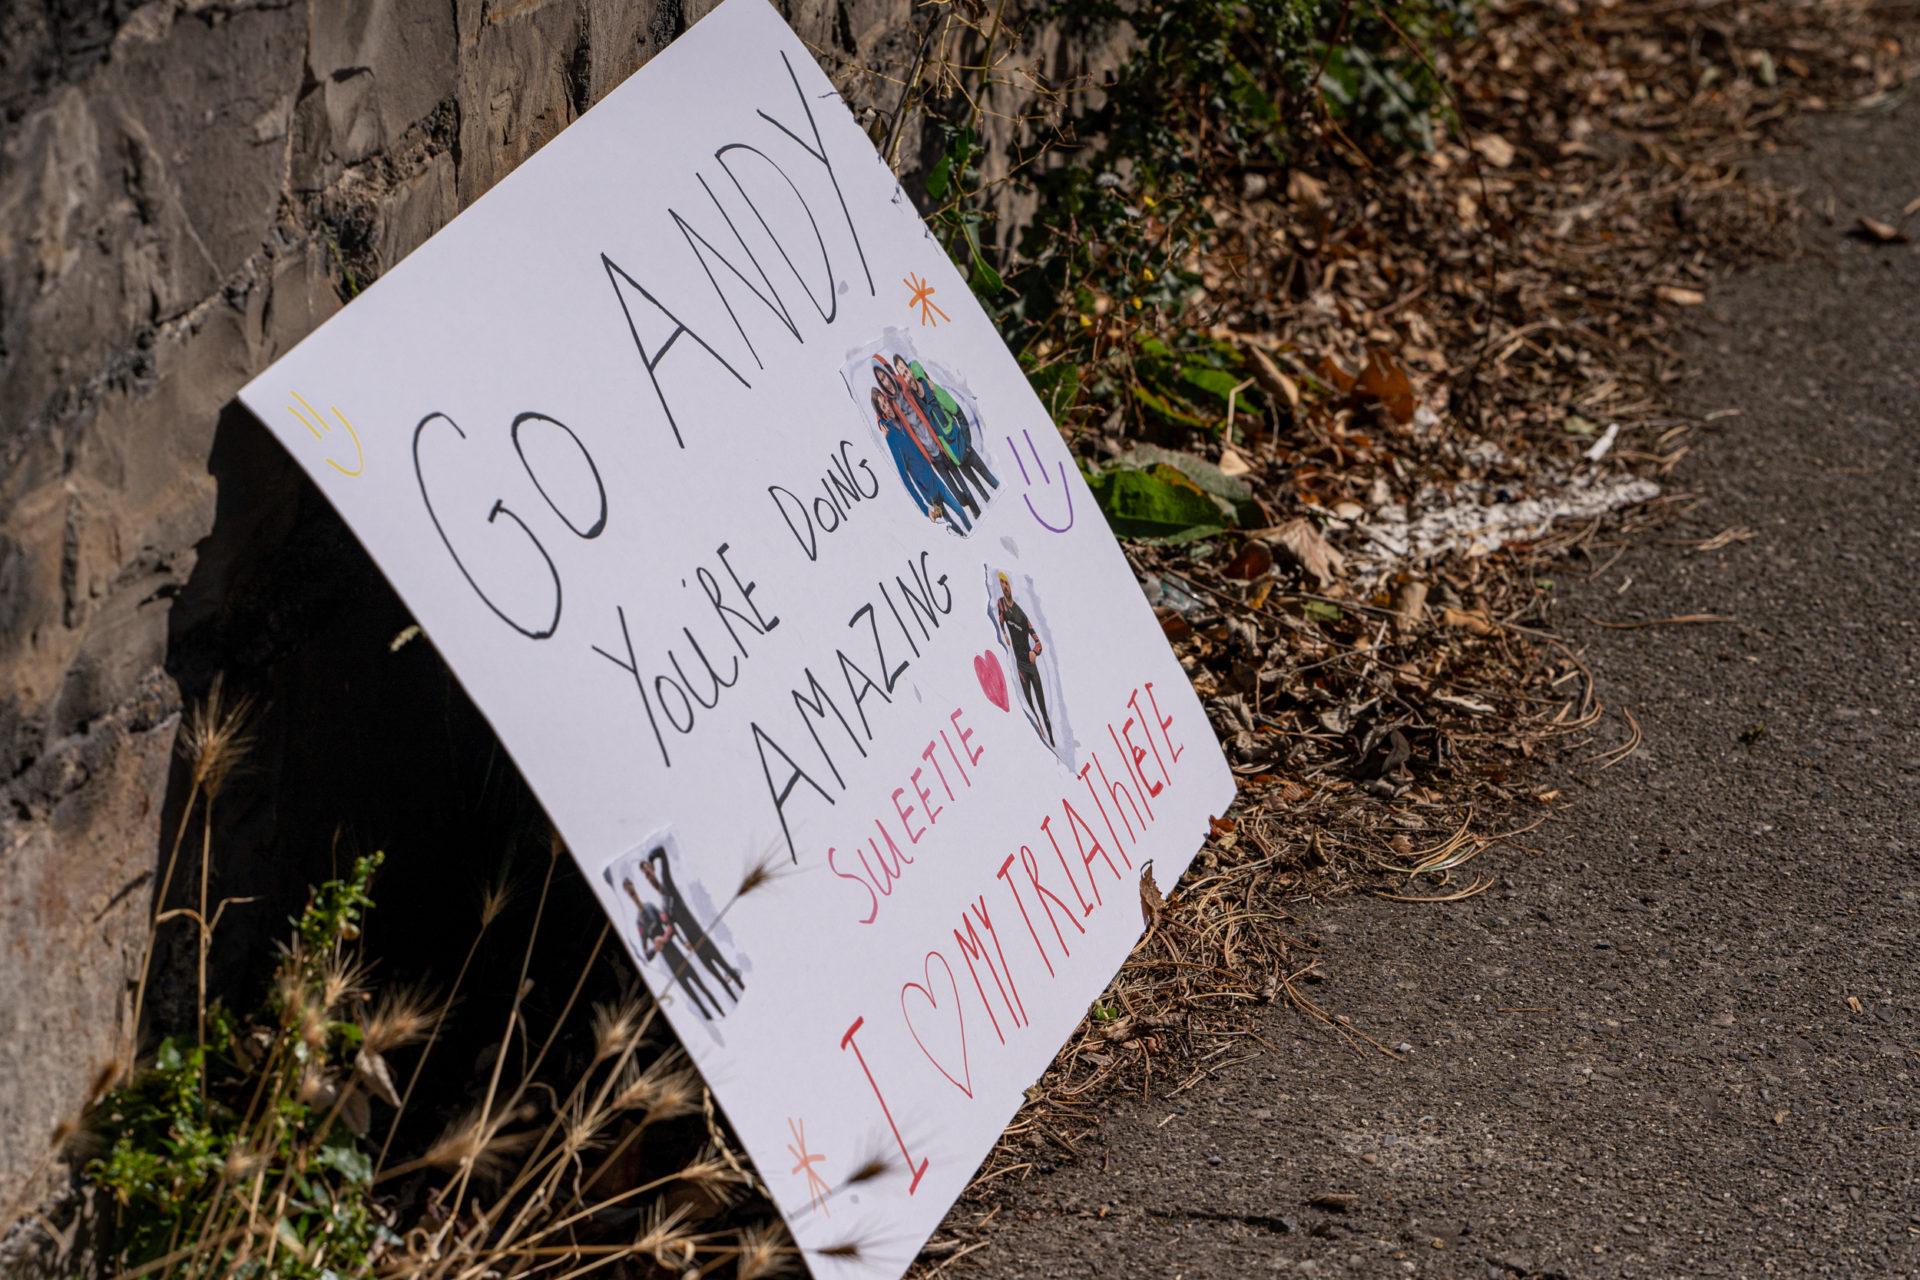 GO ANDY
YOU'RE DOING
AMAZING
SWEETIE
I ♡ MY TRIATHLETE